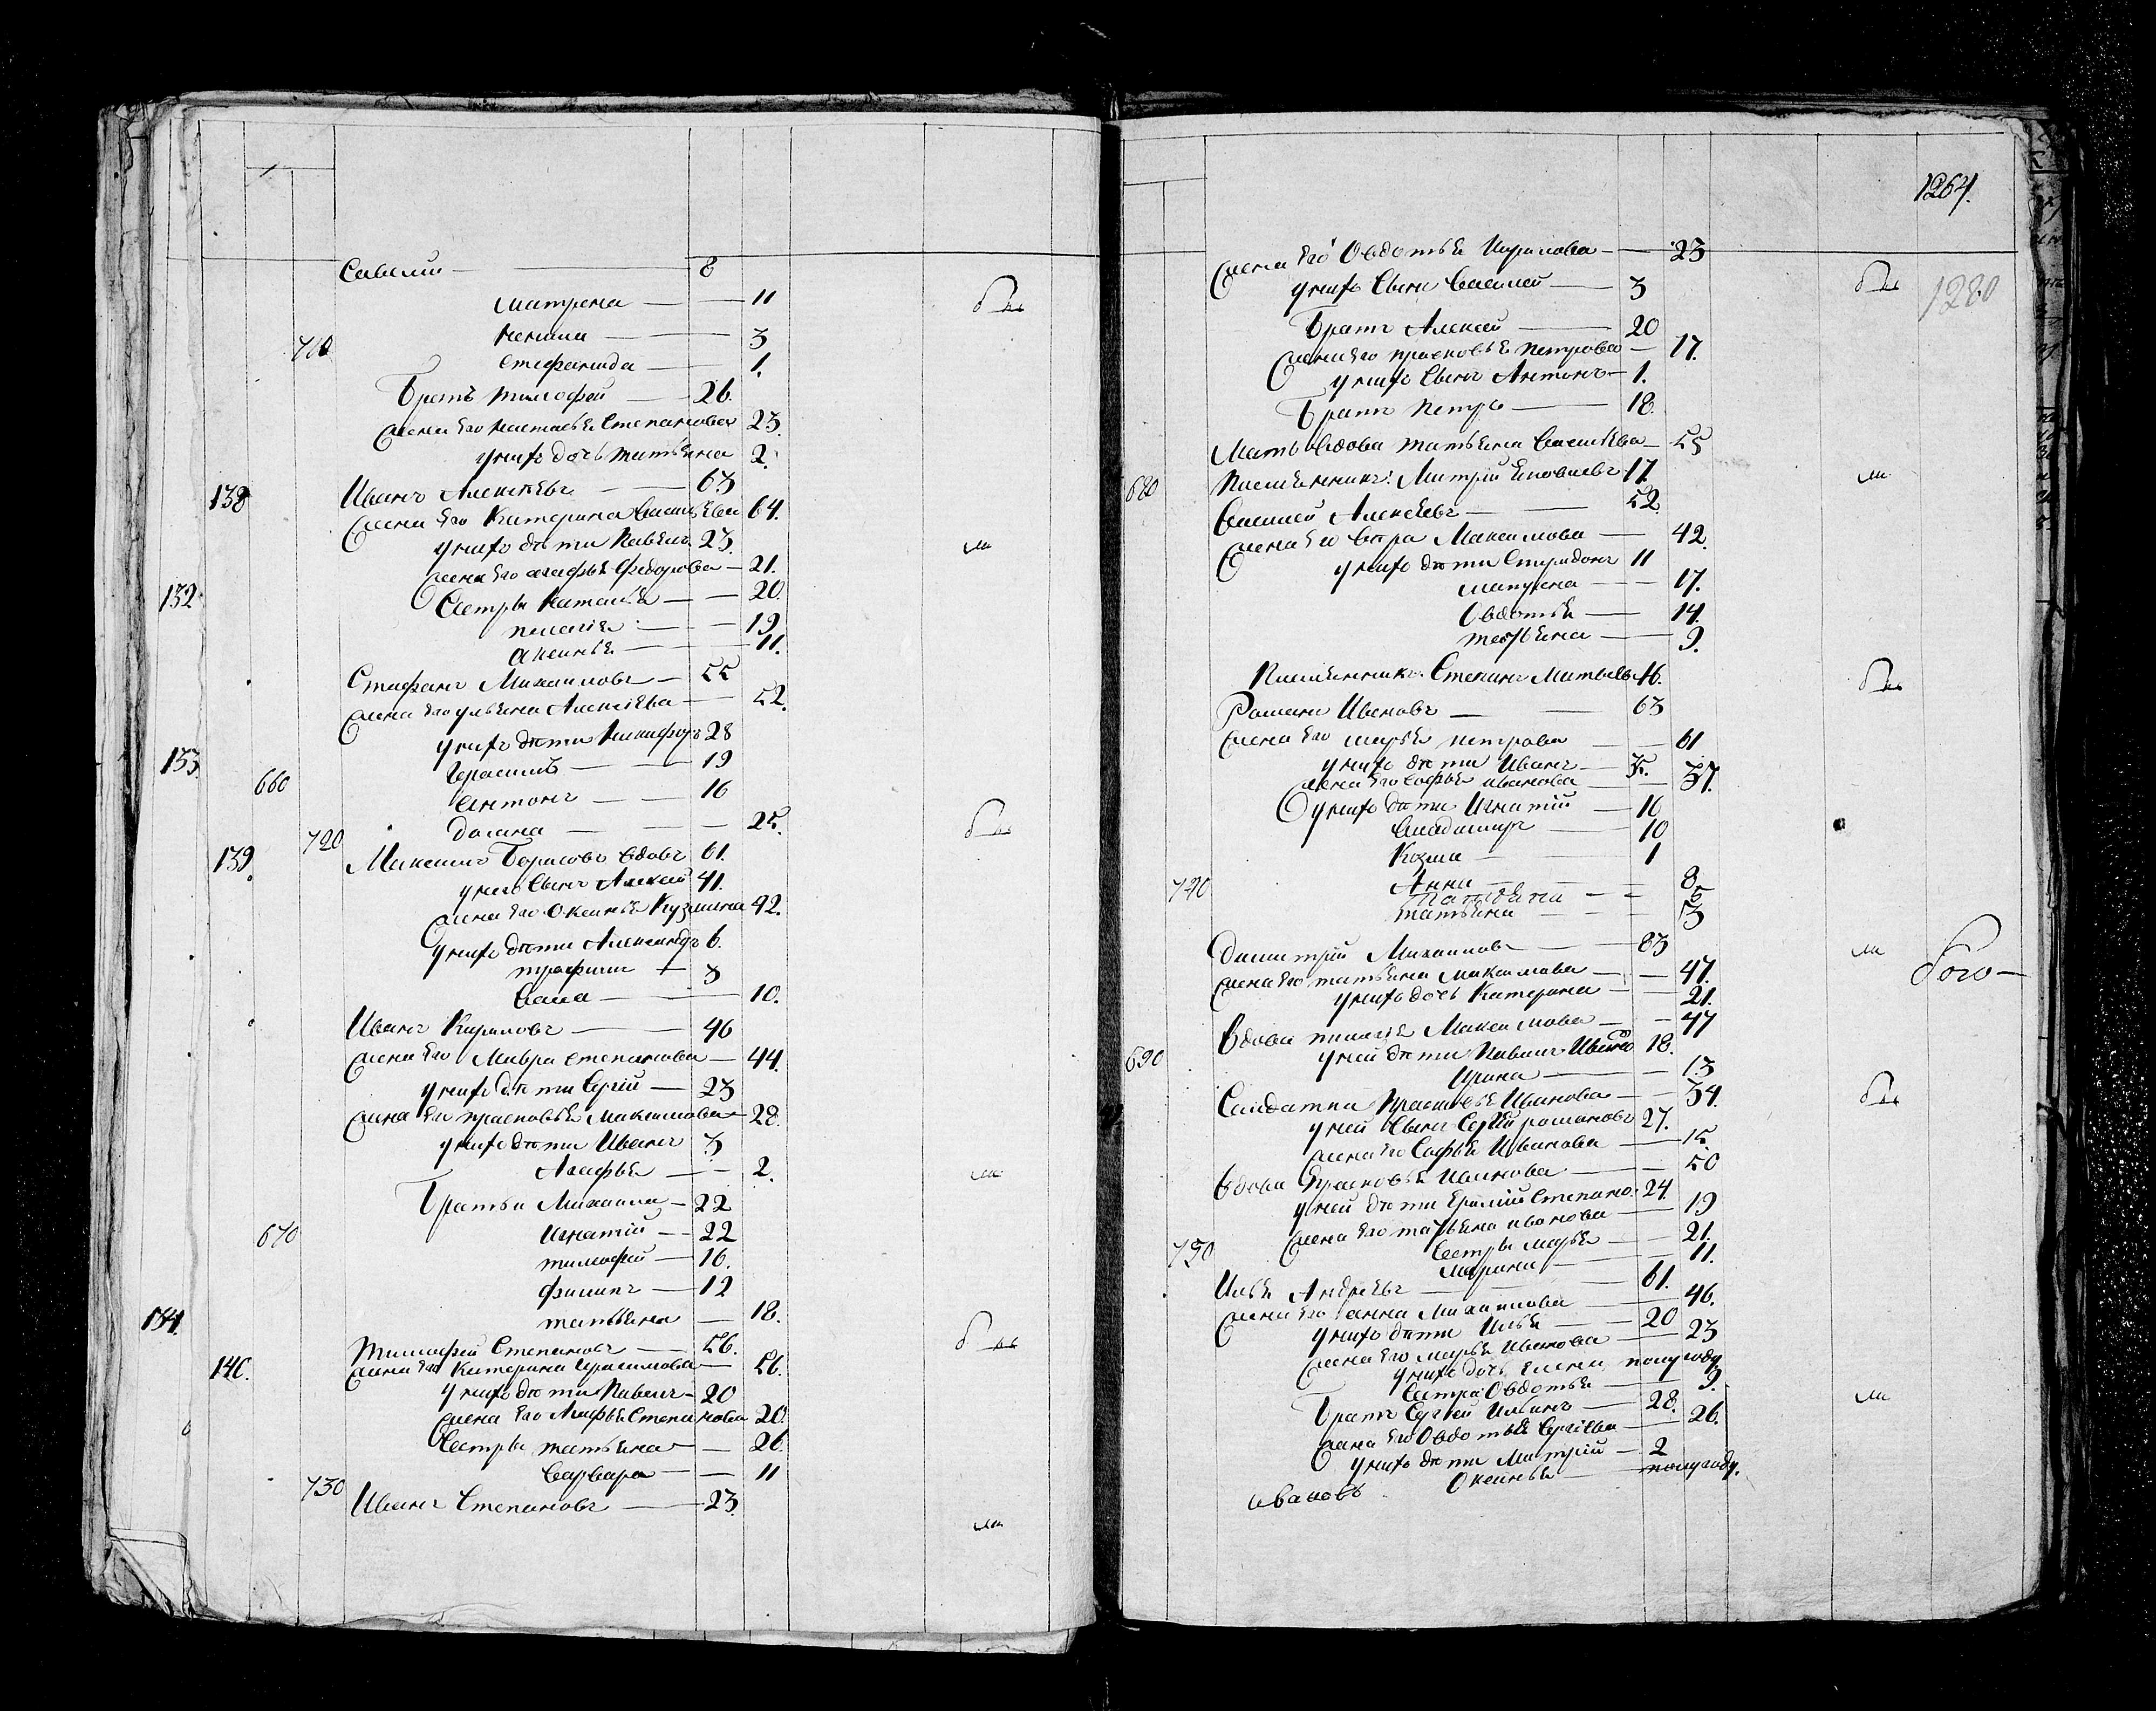 Савелий — 8
Матрена — 11
710 Ксения — 3
Стефанида — 1.
Братъ Тимофей — 26.
Жена Его Настасья Степанова 23.
у нихъ дочь Татьяна 2.
138 Иванъ Алексѣевъ — 63
Жена Его Катерина Васильева 64.
у нихъ дѣти Павелъ 23.
Жена Его Агафья Федорова — 21.
132 Сестры Наталья — 20
Пелагія — 19
Аксинья — 11.
Стефанъ Михаиловъ — 55
Жена Его Ульяна Алексѣева — 52.
у нихъ дѣти Никифоръ 28
133. Герасимъ — 19
660 Антонъ — 16
720 Домна — 25.
139. Максимъ Борисовъ вдовъ 61.
у него Сынъ Алексей 41.
Жена Его Оксинья Кузмина 42.
у нихъ дѣти Александръ 6.
Трофимъ — 3
Анна — 10.
Иванъ Кириловъ — 46
Жена Его Мавра Степанова — 44.
у нихъ дѣти Сергій — 23
Жена Его Прасковья Максимова — 28.
у нихъ дѣти Иванъ 3
Агафья — 2.
Братья Михаила — 22
670 Игнатій — 22
Тимофей — 16.
Филипъ — 12
134. Татьяна — 18.
Тимофей Степановъ — 56.
140. Жена Его Катерина Герасимова — 56.
у нихъ дѣти Павелъ — 20
Жена Его Агафья Степанова 20.
Сестры Татьяна — 26
Варвара — 11
730 Иванъ Степановъ — 23.
1264.
1280
Жена Его Овдотья Кирилова — 23
у нихъ Сынъ Василей — 3
Братъ Алексей — 20
Жена Его Прасковья Петрова — 17.
у нихъ Сынъ Антонъ — 1.
Братъ Петръ — 18.
Мать вдова Татьяна Васильева — 55
680 Племянникъ Митрій Яковлевъ 17.
Василей Алексѣевъ — 52.
Жена Его Вѣра Максимова — 42.
у нихъ дѣти Спиридонъ 11
Матрена — 17.
Овдотья — 14.
Татьяна — 9.
Племянникъ Степанъ Матвѣевъ 16.
Романъ Ивановъ — 63
Жена Его Марья Петрова — 61
у нихъ дѣти Иванъ — 35.
Жена Его Софья Иванова — 37.
у нихъ дѣти Игнатій — 16
Владимиръ — 10
Козма — 1
740 Анна — 8
— 5
Татьяна — 3
Дмитрій Михаиловъ — 83
Жена Его Татьяна Максимова — 47.
у нихъ дочь Катерина — 21.
Вдова Пелагія Максимова — 47
690 у ней дѣти Павелъ Ивановъ 18.
Ирина — 13
Салдатка Прасковья Иванова — 34.
у ней Сынъ Сергѣй Романовъ 27.
Жена Его Софья Иванова — 15.
Вдова Прасковья Иванова — 50
у ней дѣти Степано 24.
Жена Его Татьяна Иванова — 19
750 Сестры Марья — 21.
Марина — 11.
Илья Андрѣевъ — 61.
Жена Его Анна Михаилова — 46.
у нихъ дѣти Илья — 20
Жена Его Марья Иванова — 23
у нихъ дочь Елена полугоду
Сестра Овдотья — 9.
Братъ Сергѣй Ильинъ — 28.
Жена Его Овдотья Сергѣева — 26.
у нихъ дѣти Митрій — 2
Оксинья — полугоду.
Ивановъ